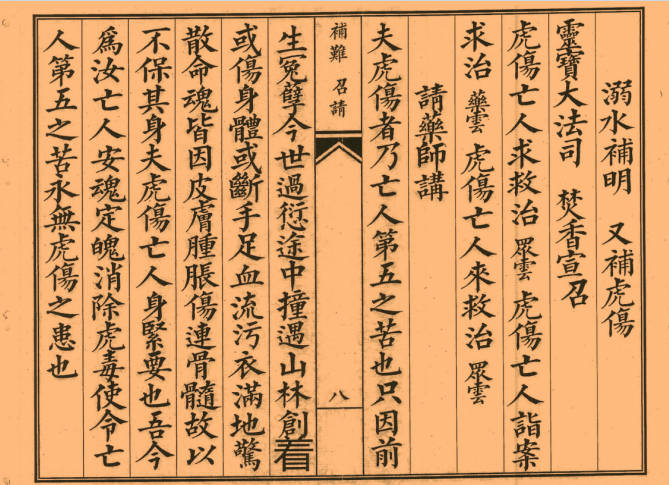 溺水補明　又補虎傷
靈寶大法司　焚香宣召
虎傷亡人求救治 眾雲 虎傷亡人詣案
求治 藥雲 虎傷亡人來救治 眾雲
請藥師講
夫虎傷者乃亡人第五之苦也只因前
補難 召請
八
生冤孽今世過愆途中撞遇山林創看
或傷身體或斷手足血流污衣滿地驚
散命魂皆因皮膚腫脹傷連骨髓故以
不保其身夫虎傷亡人身緊要也吾今
為汝亡人安魂定魄消除虎毒使令亡
人第五之苦永無虎傷之患也